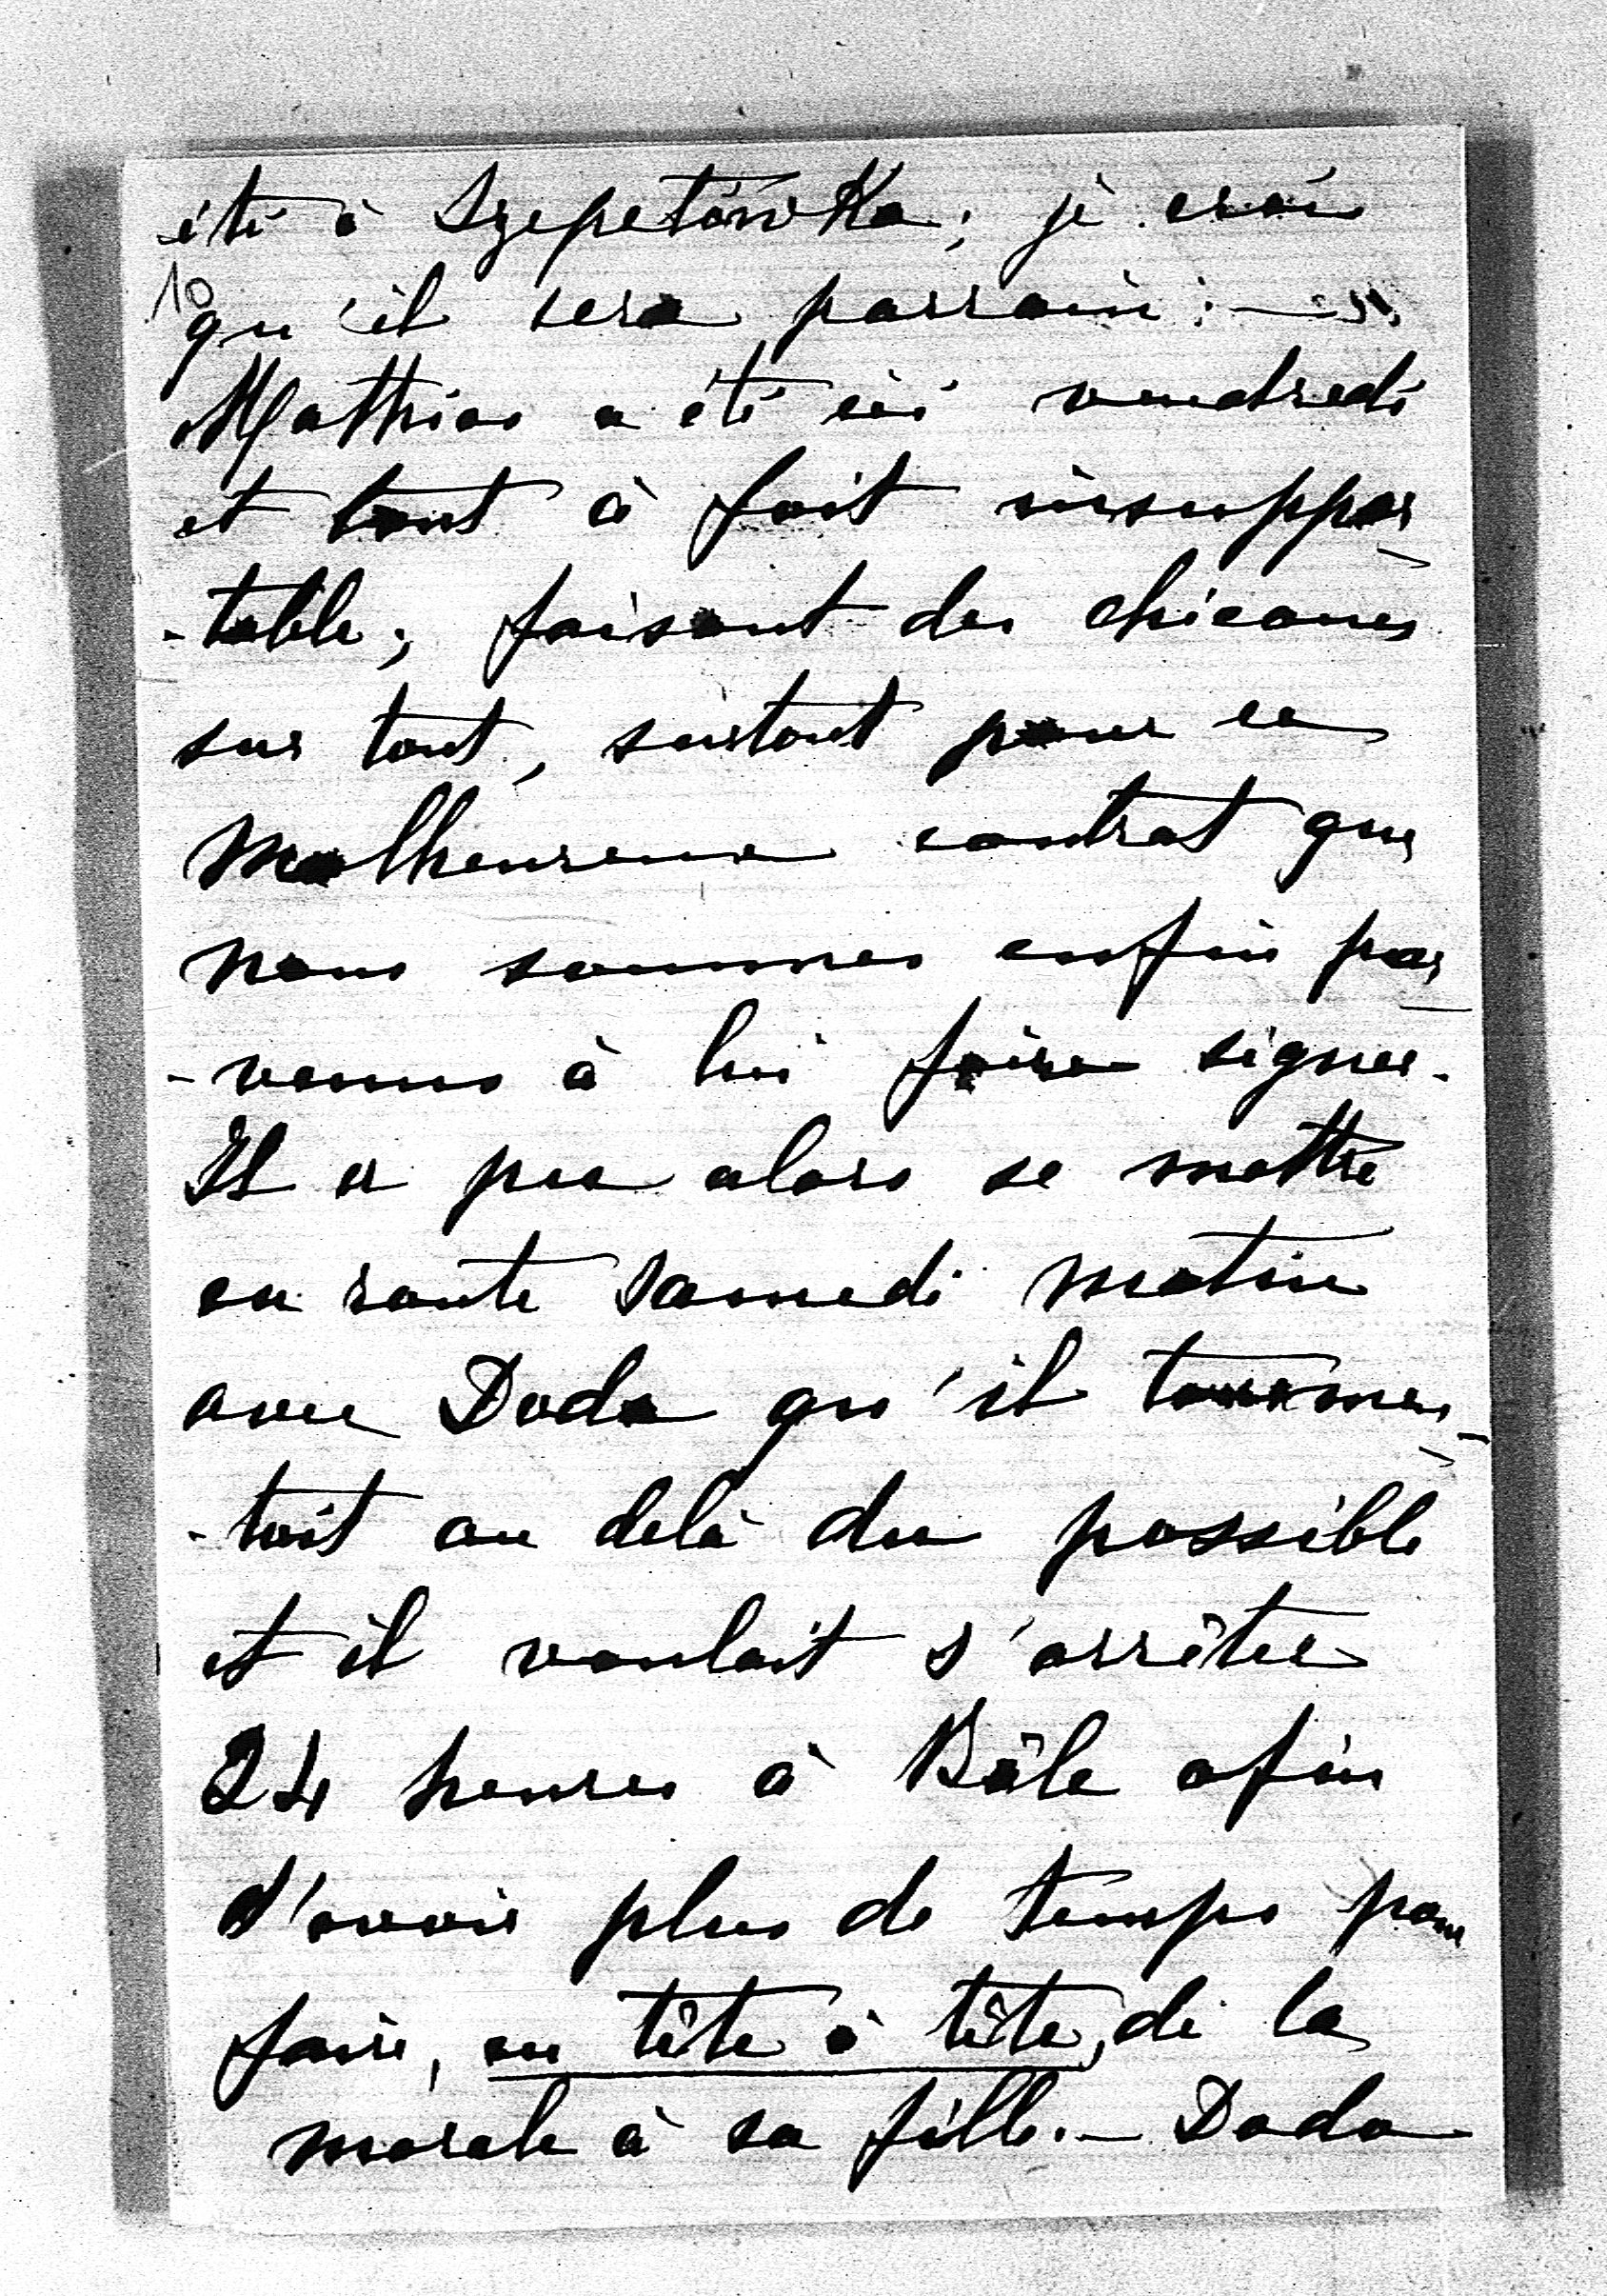 été à Szepetówka; je crois
10
qu'il sera parrain: —
Mathias a été ici vendredi
et tout à fait insuppor
-table; faisant des chicanes
sur tout, surtout pour ce
malheureux contrat que
nous sommes enfin par
-venus à lui faire signer.
Il a pu alors se mettre
en route samedi matin
avec Doda qu'il tourmen-
-tait au delà du possible
et il voulait s'arrêter
24 heures à Bâle afin
d'avoir plus de temps pour
faire, en tête à tête, de la
morale à sa fille. — Doda